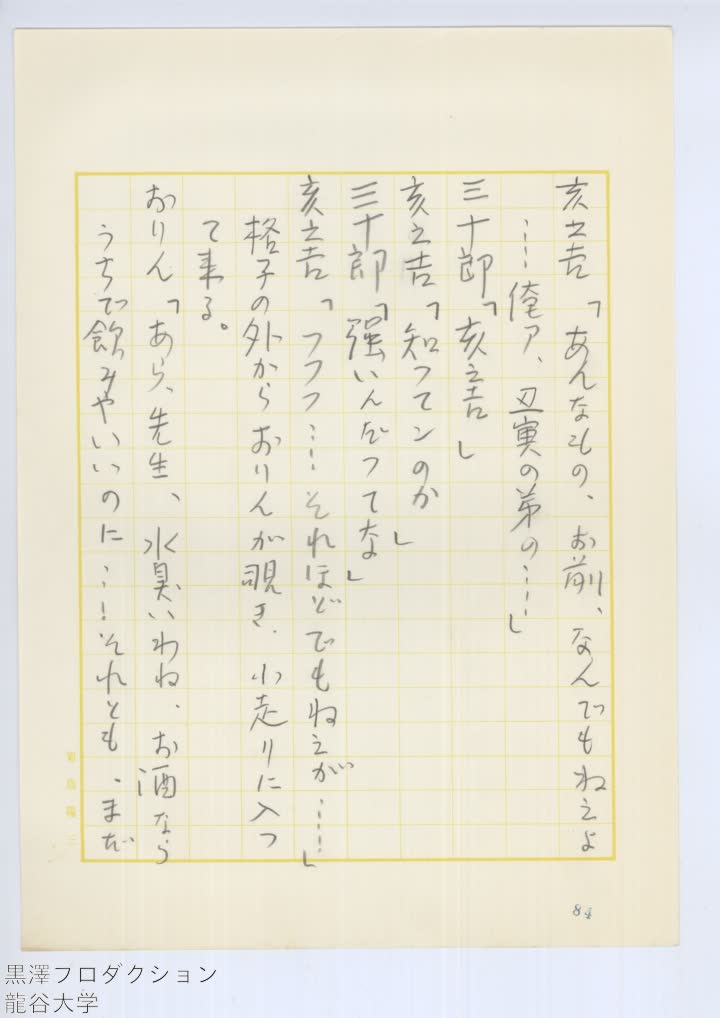 亥之吉「あんなもの、お前、なんでもねえよ
……俺ァ、丑寅の弟の……」
三十郎「亥之吉」
亥之吉「知つてンのか」
三十郎「強いんだつてな」
亥之吉「フフフ……それほどでもねえが……」
格子の外からおりんが覗き、小走りに入つ
て来る。
おりん「あら、先生、水臭いわね、お酒なら
うちで飲みやいいのに……それとも、まだ
84
黒澤プロダクション
龍谷大学